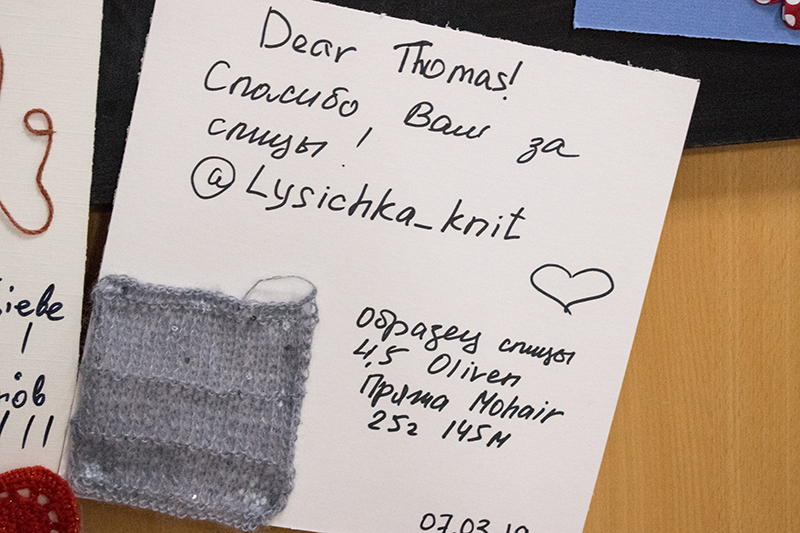 Dear Thomas!
Спасибо Вам за
спицы!
@Lysichka_knit
образец спицы
4,5 Oliven
Пряжа Mohair
25г 145м
07.03.19